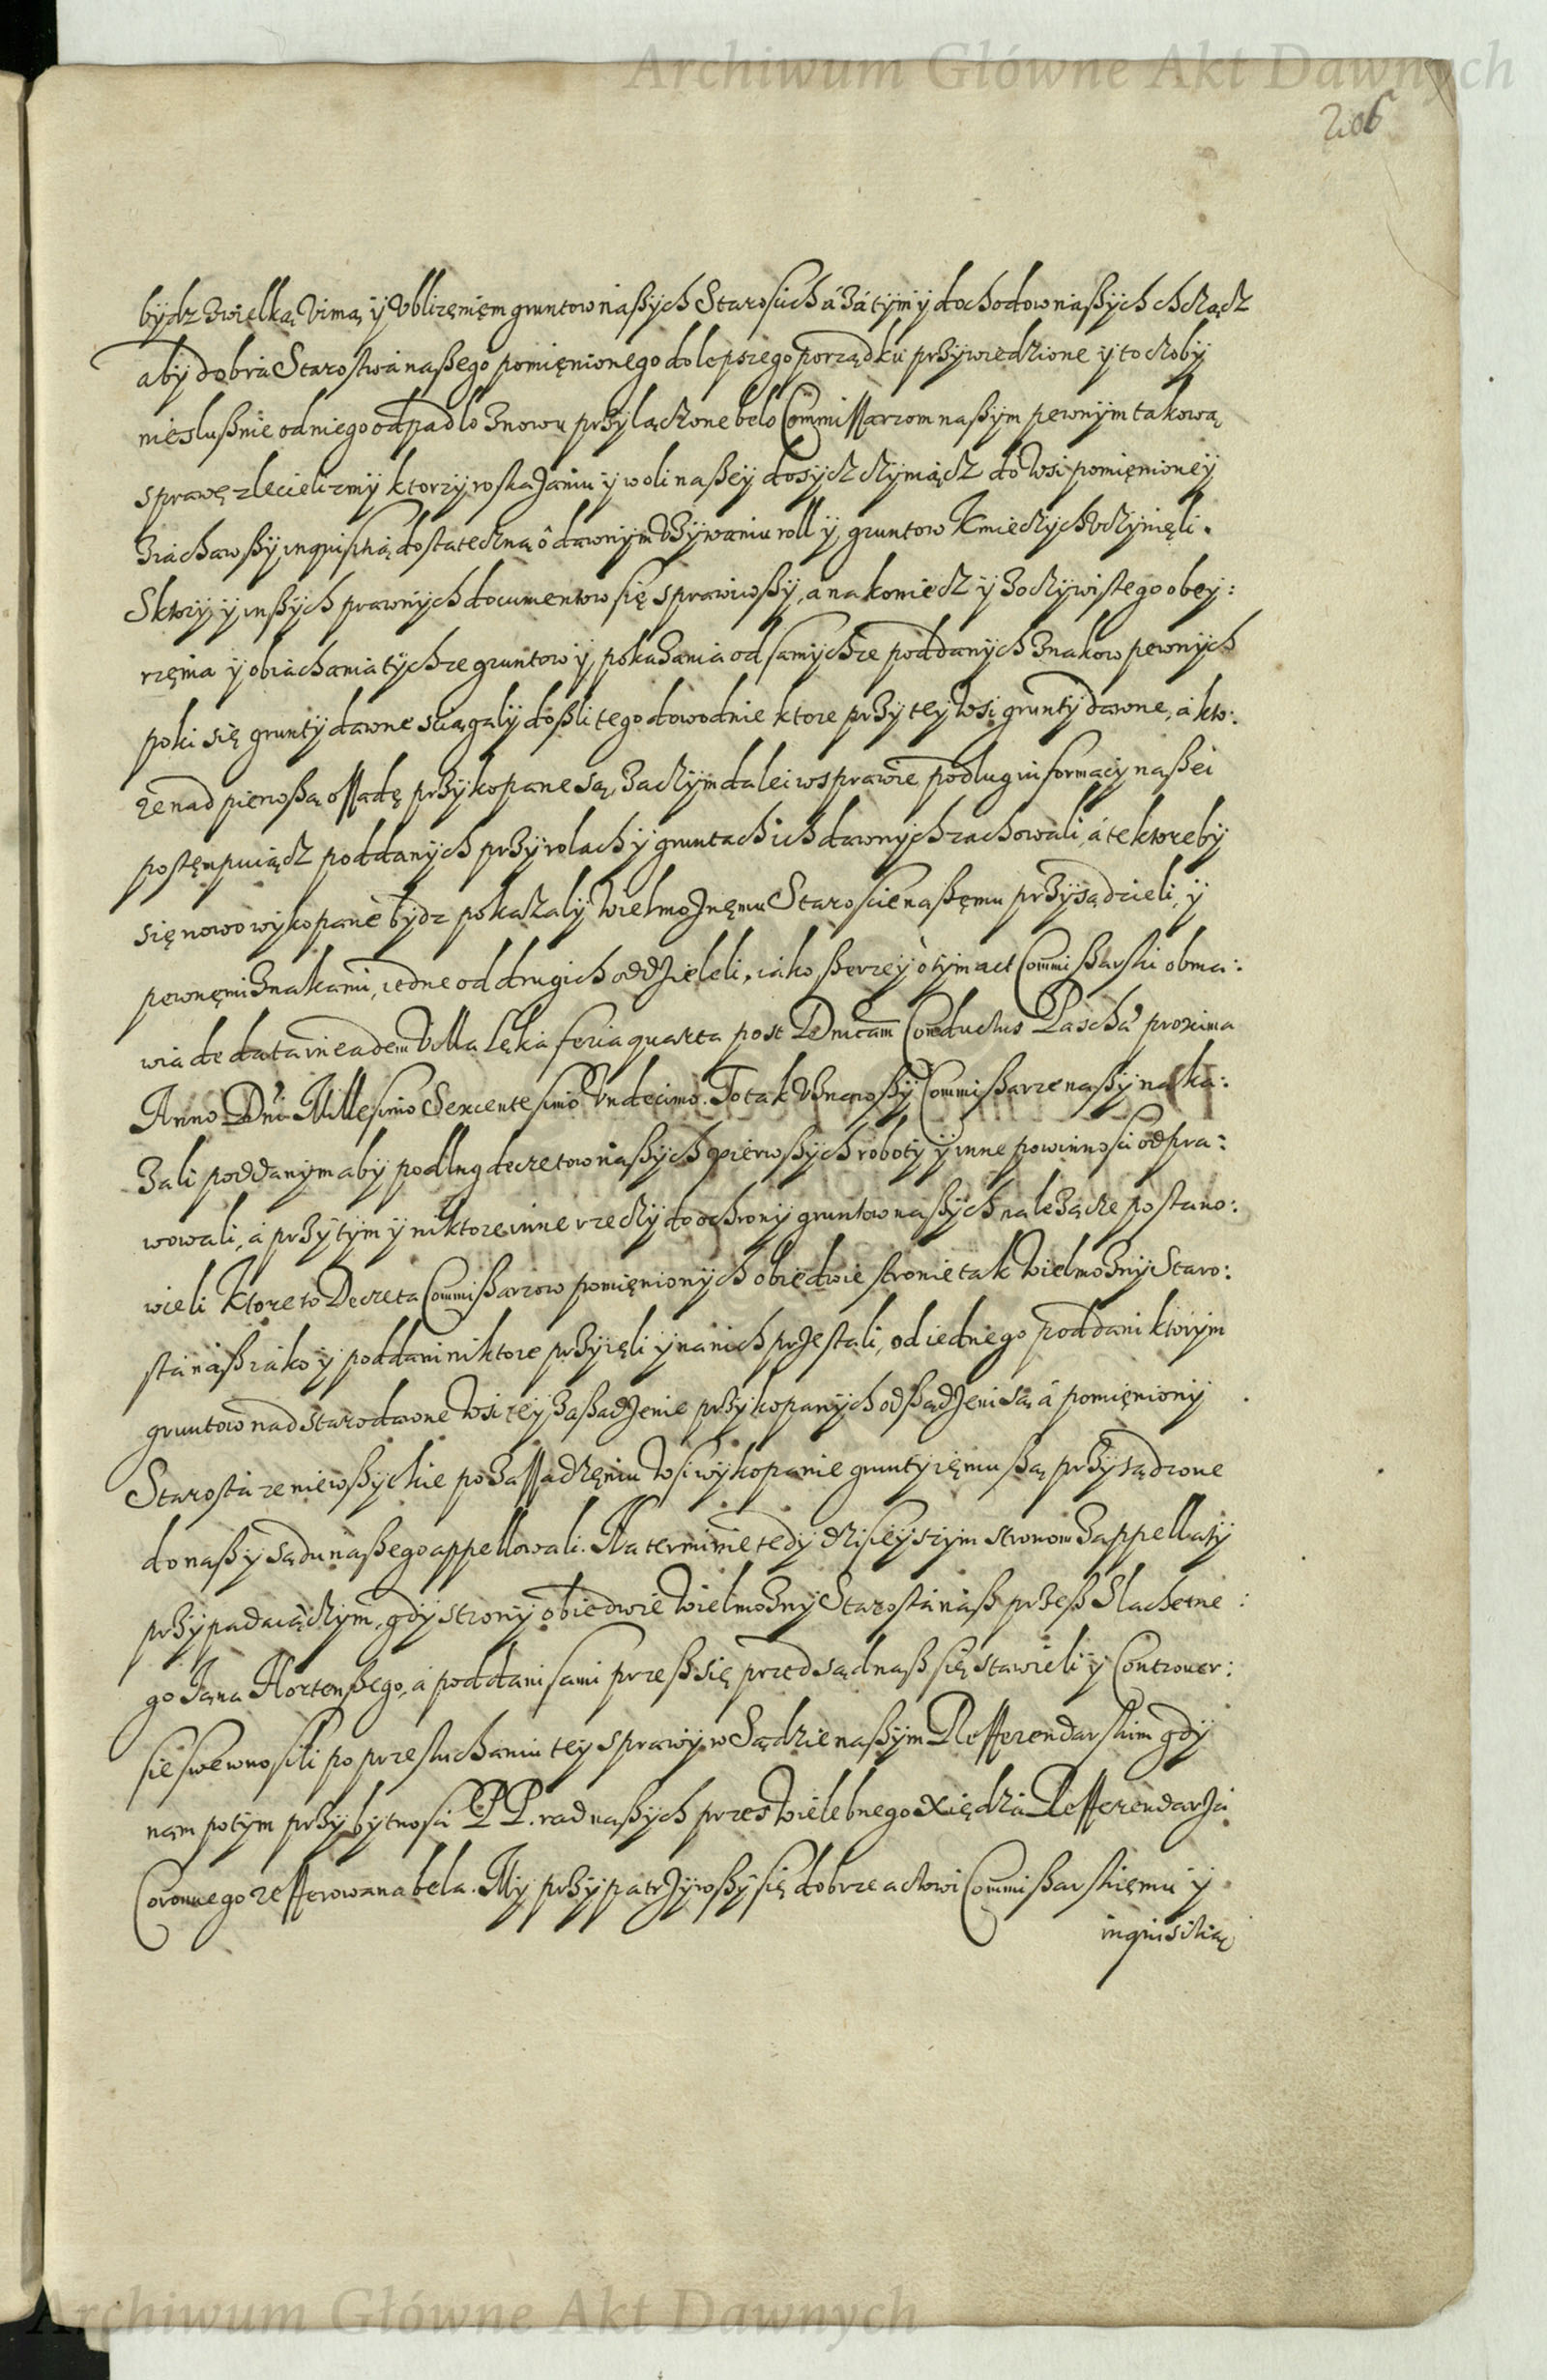 Archiwum Główne Akt Dawnych
206
bydz z wielką vimą y vbliżęnięm gruntow naßych Starosich á zátym y dochodow naßych chczącz
aby dobrá Starostwá naßego pomięnionego do lepszego porządku przywiedzione y to czoby
niesłußnie od niego odpadło znowu przyłączone beło Commissarzom naßym pewnym takową
sprawę zlecielizmy ktorzy roskazaniu y woli naßey dosycz czyniącz do wsi pomięnioney
ziachawßy inquisitią dostateczną o dawnym vżywaniu roll y gruntow Kmieczych vczynięli.
Sktory y inßych prawnych documentow się sprawiwßy, a na koniecz y z oczywistego obey:
rzęnia y obiachania tychże gruntow y pokazania od samychże poddanych znakow pewnych
poki się grunty dawne sciągały doßli tego dowodnie ktore przy tey wsi grunty dawne, á kto:
re nad pierwßą ossadę przykopane są, zaczym daley w sprawie podług informacij naßei
postęmpuiącz poddanych przy rolach y gruntach ich dawnych zachowali, á te ktoreby
się nowo wykopane bydz pokazały Wielmoznęmu Starosćie naßęmu przysądzieli, y
pewnęmi znakami, iedne od drugich oddzieleli, iáko ßerzey o tym act Commißarski obma:
wia de data in eadem Villa Łęka feria quarta post Dnicam Conductus Paschá proxima
Anno Dni Millesimo Sexcentesimo Vndecimo. To tak vznawßy Commißarze naßy naka:
zali poddanym aby podług decretow naßych pierwßych roboty y inne powinnosci odpra:
wowali, á przy tym y niktore inne rzeczy do ochrony gruntow naßych nalezące postano:
wieli Ktore to Decreta Commißarzow pomięnionych obiedwie stronie tak Wielmozny Staro:
stá náß iáko y poddani niktore przyięli y ná nich przestali, od iednego poddani ktorym
gruntow nad starodawne wsi tey zaßadzenie przykopanych odßądzeni są á pomięniony
Starostá że niewßyckie po zassadzęniu wsi wykopanie grunty ięmu ßą przysądzone
do naß y sądu naßego appellowali. Na terminie tedy dzisieyszym stronom z appellaty
przypadaiączym, gdy strony obiedwie Wielmozny Starostá náß przeß Slachetne:
go Jana Hortenßego, á poddani sami przeß się przed sąd naß się stawieli y Controuer:
sie swe wnosili po przesłuchaniu tey sprawy w Sądzie naßym Refferendarskim gdy
nąm potym przy bytnosci PP. rad naßych przes Wielebnego Xiędzá Refferendarzá
Coronnego refferowana beła. My przypatrzywßy się dobrze actowi Commißarskięmu y
inquisitią
Archiwum Główne Akt Dawnych